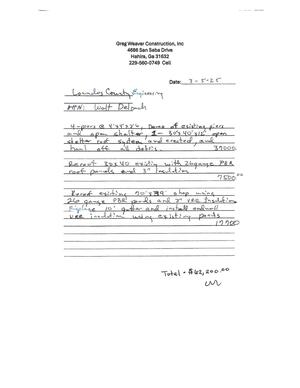 Greg Weaver Construction, Inc
4686 San Saba Drive
Hahira, Ga 31632
229-560-0749 Cell
Date: 3-5-25
Lowndes County Engineering
ATTN: Walt
4-piers @ Demo of existing piers
and open shelter, 1- 30x40x12' open
shelter roof system and erected, and
haul off all debris. 37000
Reroof 30x40 existing with 26gauge PBR
roof panels and 3" Insulation
7500.00
Reroof existing shop using
26 gauge PBR panels and 3" VRR Insulation
10' gutter and install endwall
VRR insulation using existing panels
17700
Total - $62,200.00